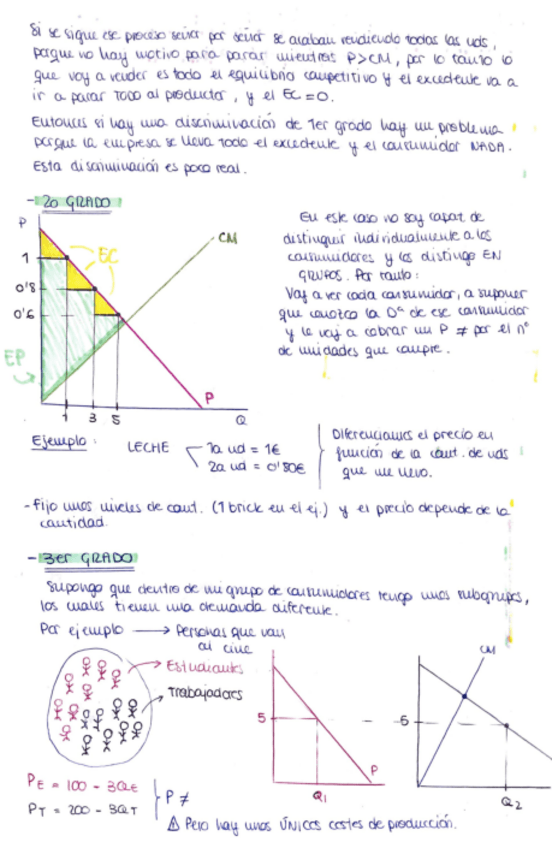 Si se sigue ese proceso señor por señor se acaban vendiendo todas las uds,
porque no hay motivo para parar mientras P>CM, por lo tanto lo
que voy a vender es todo el equilibrio competitivo y el excedente va a
ir a parar TODO al productor, y el EC=0.
Entonces si hay una discriminación de 1er grado hay un problema
porque la empresa se lleva todo el excedente y el consumidor NADA.
Esta discriminación es poco real.
- 2o GRADO:
P
CM
EC
1
0'8
0'6
EP
1 3 5
P
Q
En este caso no soy capaz de
distinguir individualmente a los
consumidores y los distingo EN
GRUPOS. Por tanto:
Voy a ver cada consumidor, a suponer
que conozco la Dª de ese consumidor
y le voy a cobrar un P ≠ por el nº
de unidades que compre.
Ejemplo:
LECHE
1a ud = 1€
2a ud = 0'80€
Diferenciamos el precio en
función de la cant. de uds
que me llevo.
- Fijo unos niveles de cant. (1 brick en el ej.) y el precio depende de la
cantidad.
- 3er GRADO
Supongo que dentro de mi grupo de consumidores tengo unos subgrupos,
los cuales tienen una demanda diferente.
Por ejemplo → Personas que van
al cine
Estudiantes
Trabajadores
5
Q1
P
CM
6
Q2
PE = 100 - 3QE
PT = 200 - 3QT
P ≠
⚠ Pero hay unos ÚNICOS costes de producción.